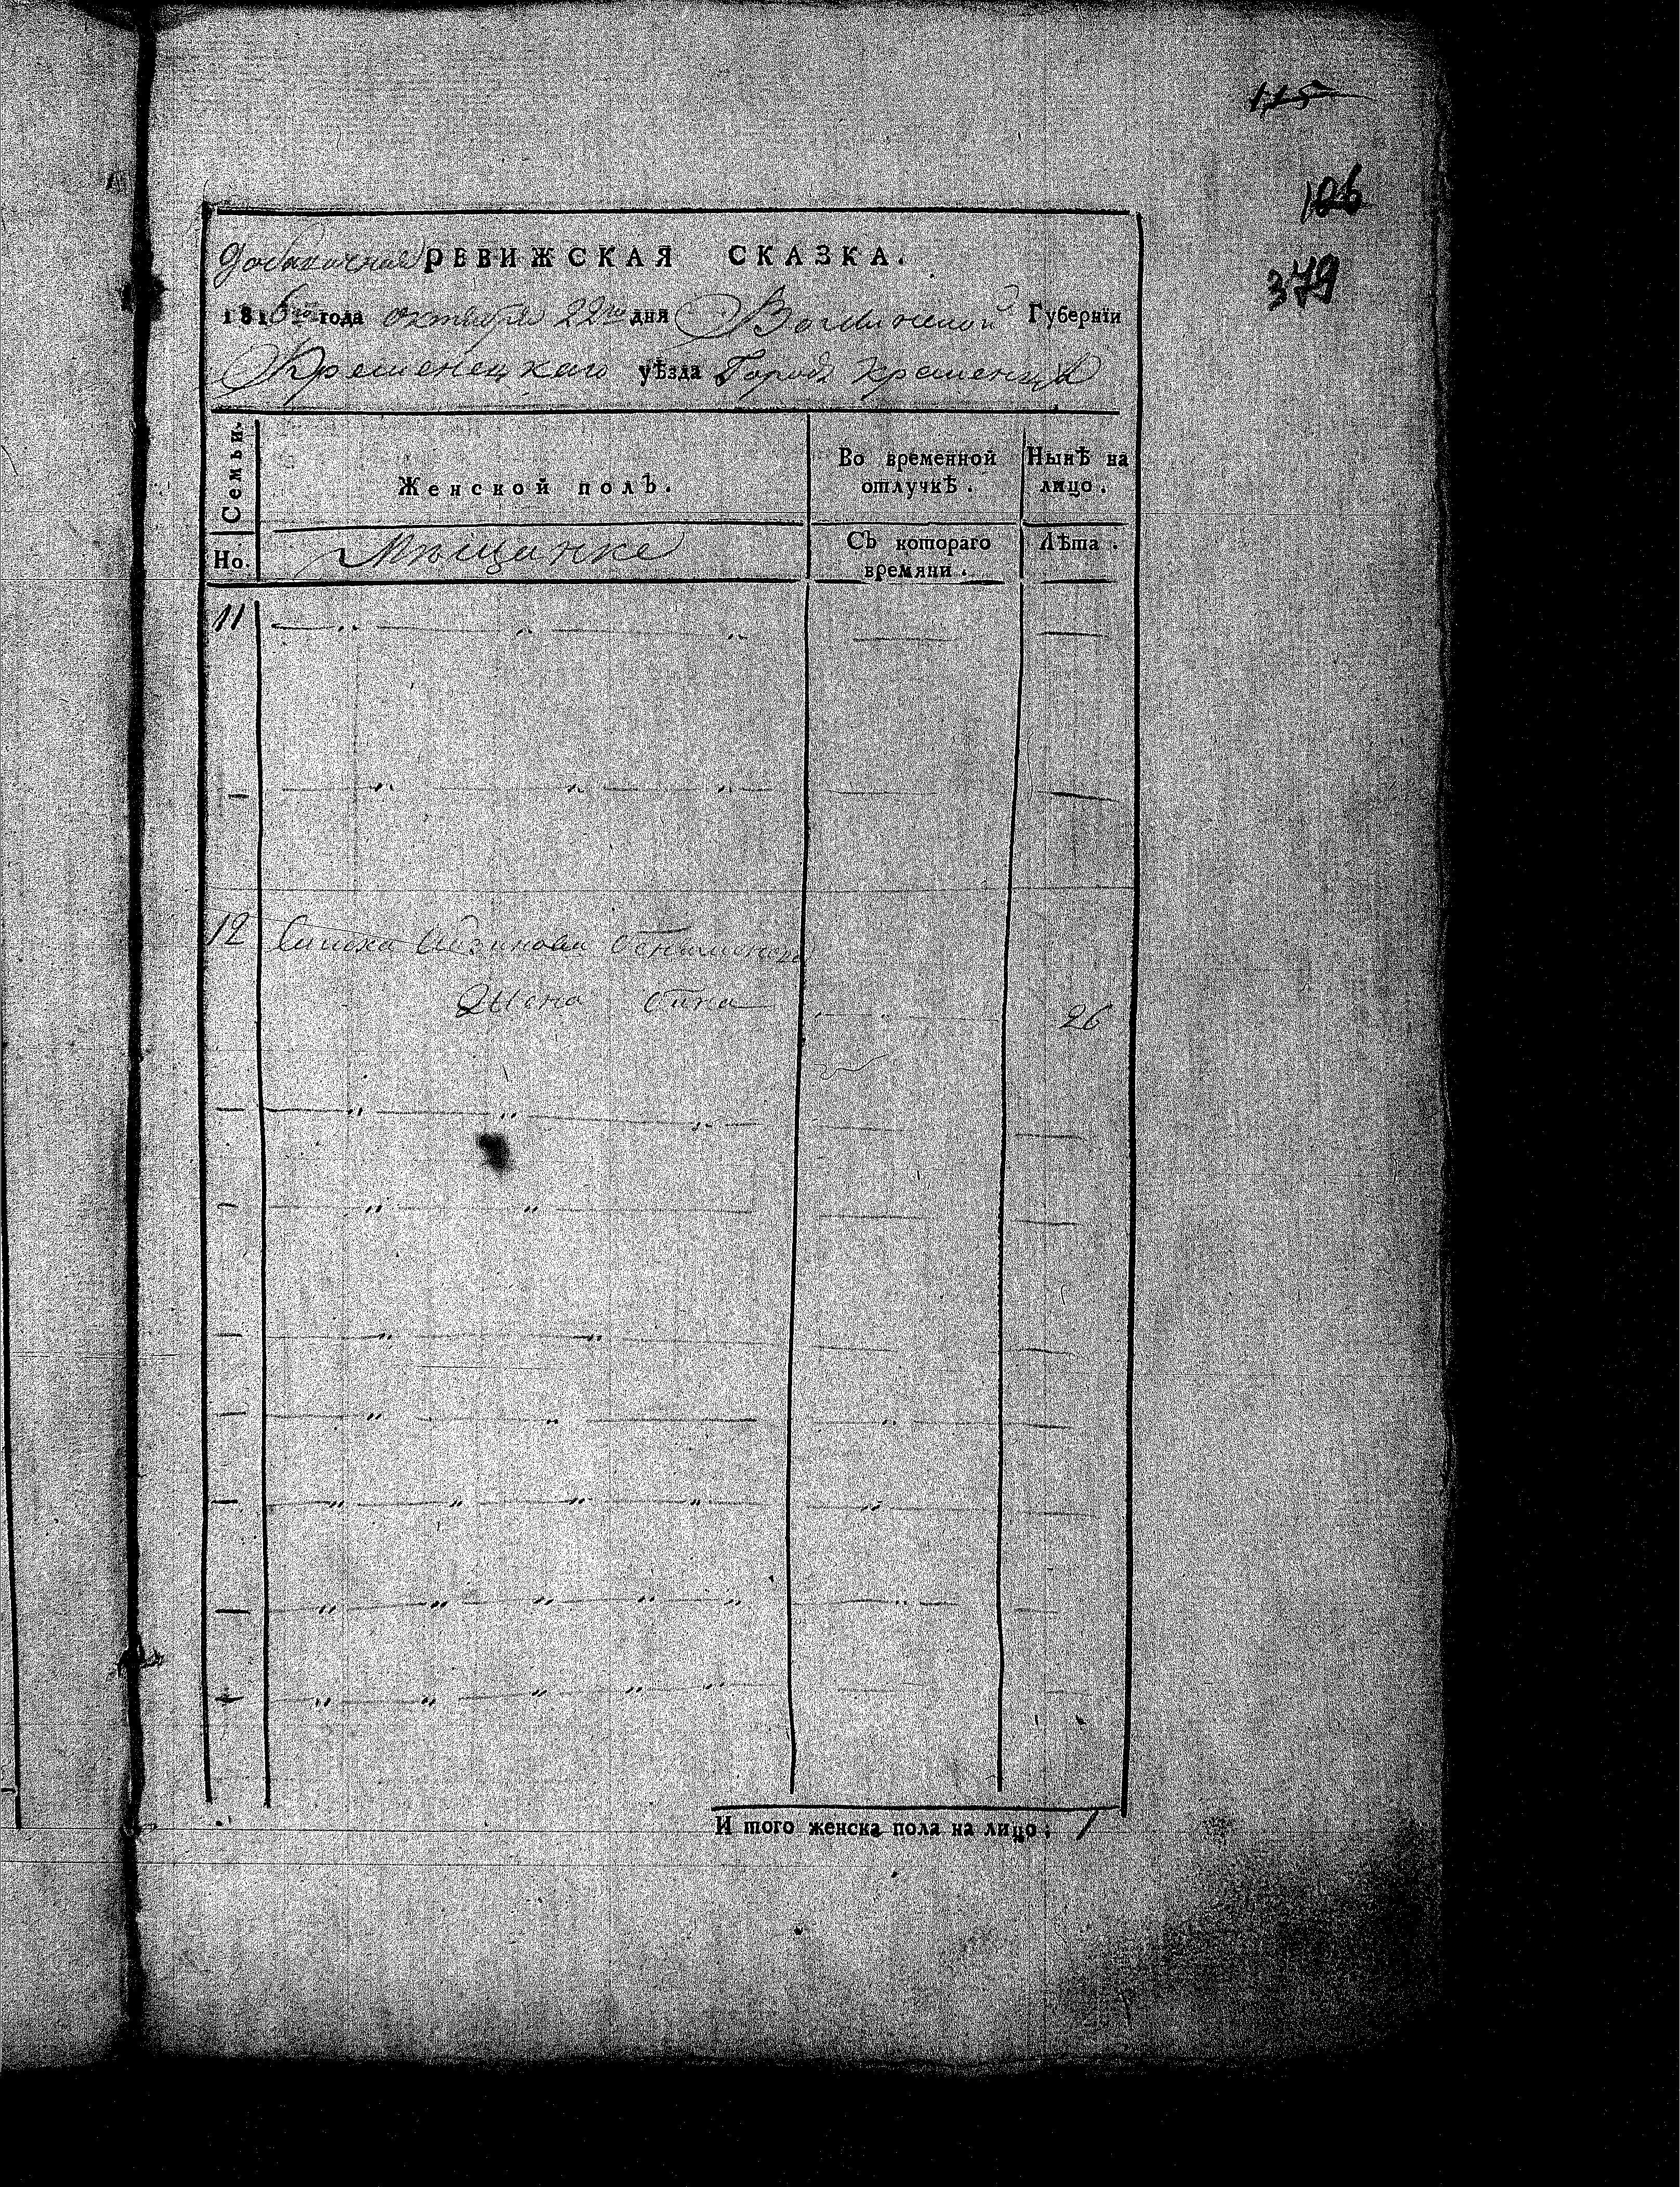 115
106
379
Добавочная РЕВИЖСКАЯ СКАЗКА.
1816го года октября 22го дня Волынской Губернїи
Кременецкаго уѣзда Города Кременца
Семьи.
Женской полъ.
Во временной отлучкѣ.
Нынѣ на лицо.
Но.
Мещанке
Съ котораго времяни.
Лѣта.
11
12
Жена
26
И того женска пола на лицо; 1